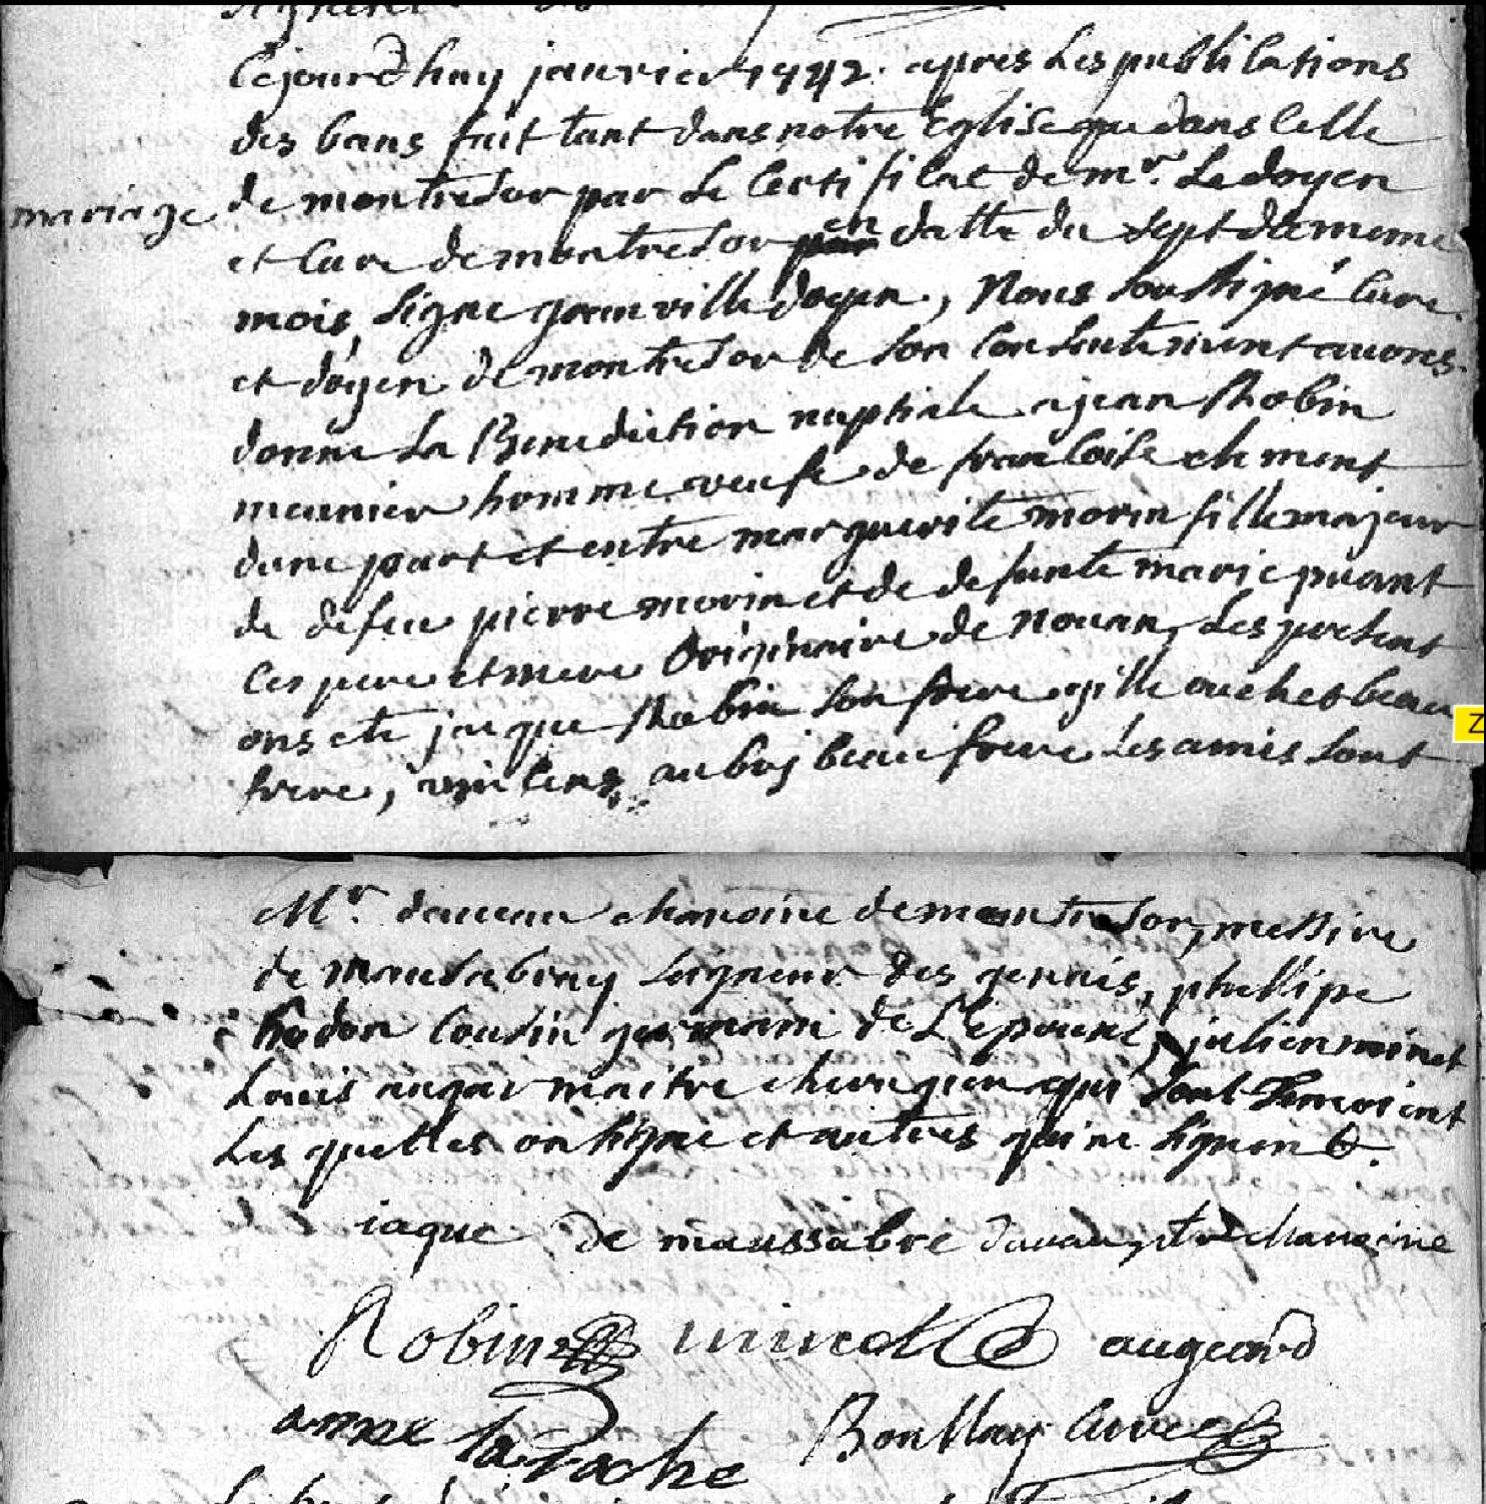 Cejourdhuy janvier 1742. apres Les publications
des bans fait tant dans notre Eglise que dans Celle
mariage
de montresor par Le Certificat de mr. Ledoyen
et Cure de montresor en datte du sept du meme
mois, signe grainville doyen, Nous soussigné Cure
et doyen de montresor de son Consentement avons
donne La Benediction nuptiale a jean Robin
meunier homme veufe de francoise clement
dune part et entre marguerite morin fille majeur
de defeu pierre morin et de defunte marie puant
Ces pere et mere Originaire de Nouan, Les parent
ons ete jacque Robin son frere gille ouchet beau
frere, vincens aubry beau frere Les amis sont
Mr. davau chanoine de montresor, messire
de mausabray seigneur des genais, phellipe
hodon Cousin germain de L'epouse, julien minet
Louis augar maitre chirurgien qui sont temoient
Les quelles on signe et autres qui ne signent.
iaque de maussabre davau ptre chanoine
Robin minet augeard
anne la Roche Boullay Curé